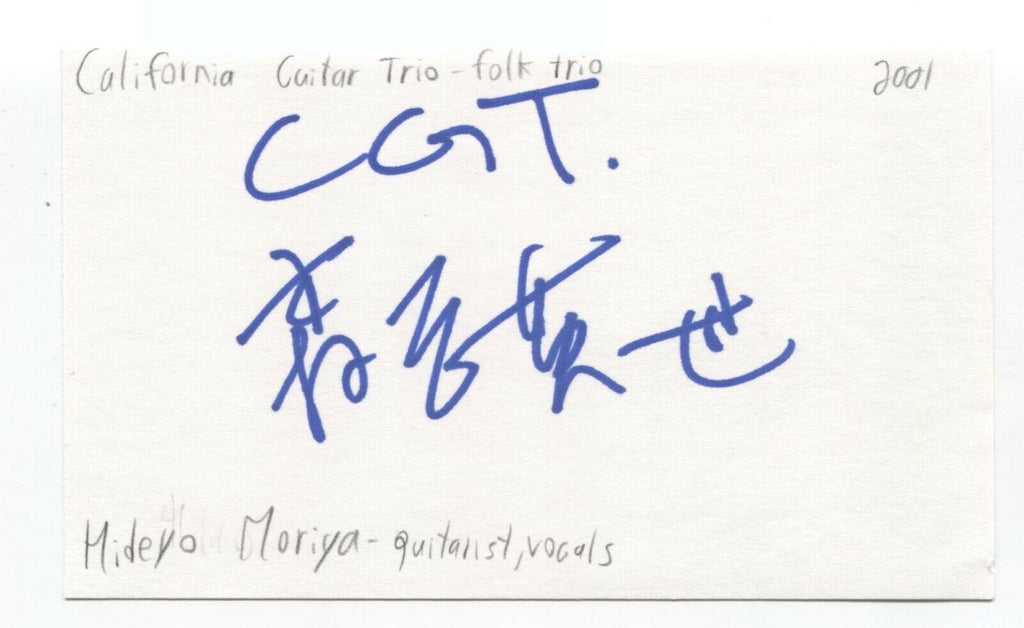 California Guitar Trio - folk trio 2001
CGT.
森谷英世
Hideyo Moriya - guitarist, vocals